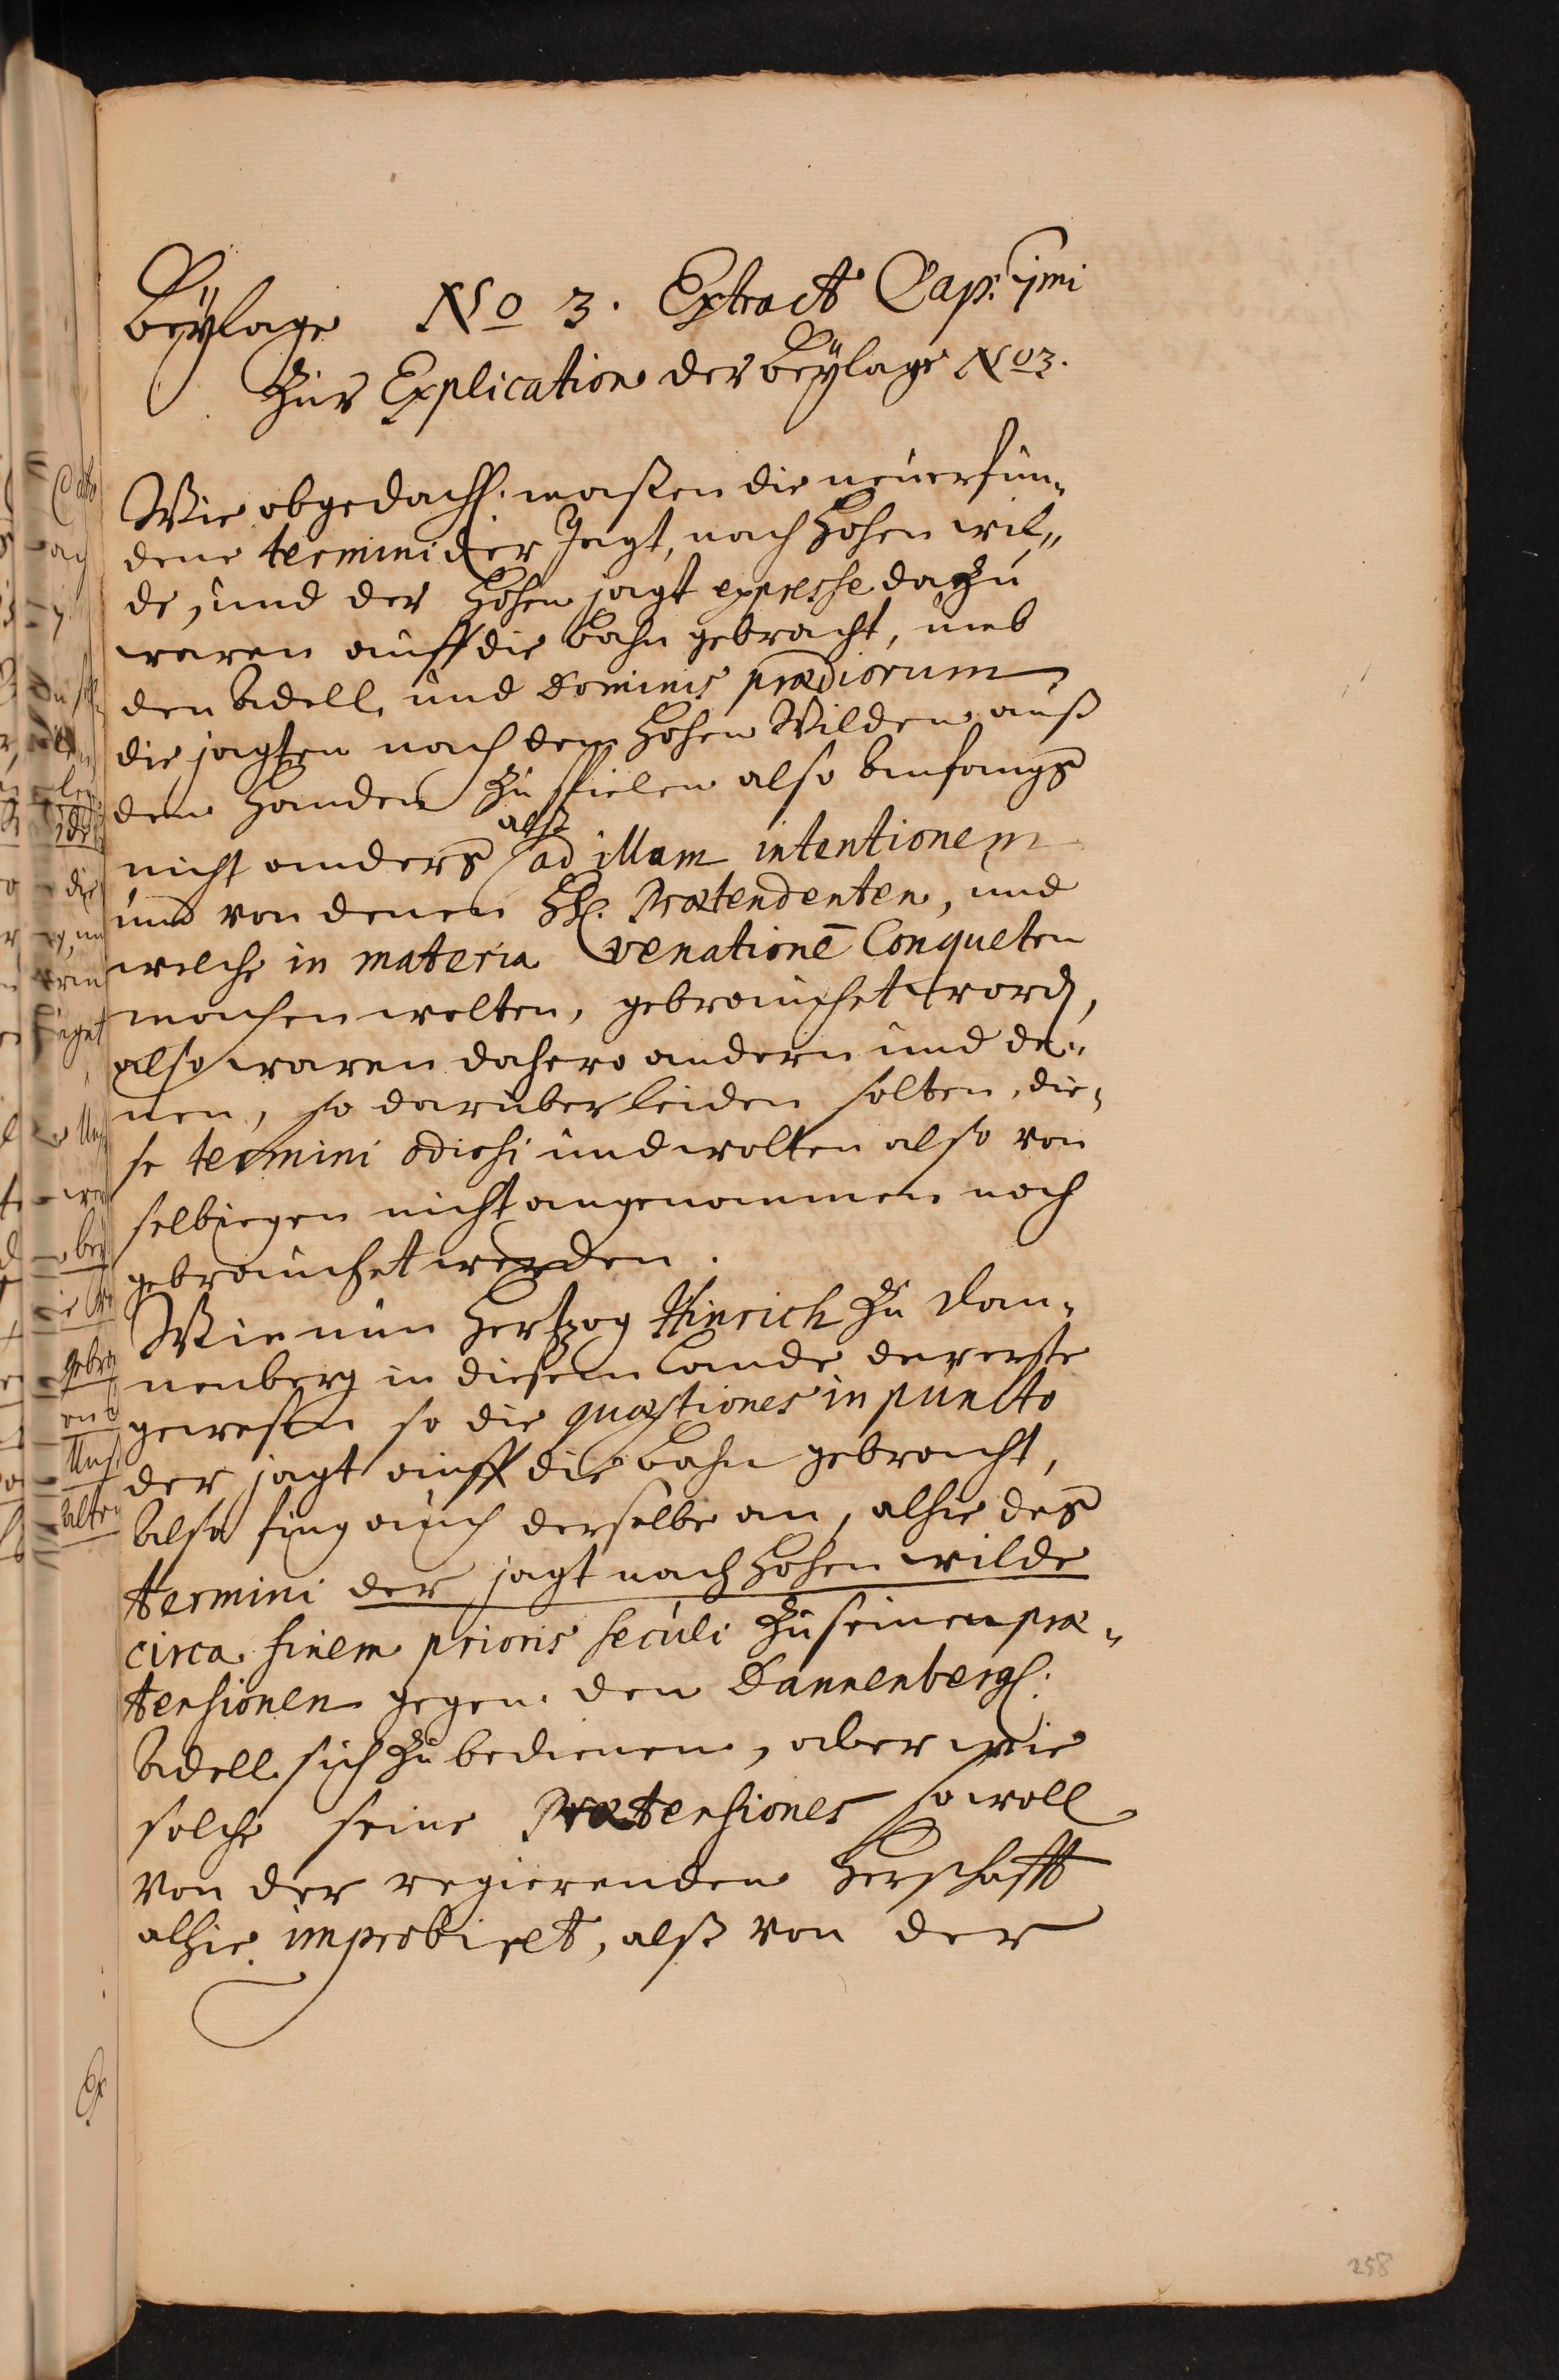 Beÿlage No 3. Extract Cap. 1mi
Zur Explication der Beÿlage No 3.
Wie obgedachter maßen die neuerfun-
dene termini der Jagt, nach Hohen wil-
de, und der Hohen jagt expresse dazu
waren auff die bahn gebracht, umb
den Adell und Dominis prædiorum
die jagten nach dem Hohen Wilden auß
den Handen zu spielen also Anfangs
alß
nicht anders ad illam intentionem
und von denen HH. Prætendenten, und
welche in materia venatione Conqueten
machen wolten, gebrauchet word,
also waren dahero andern und de-
nen, so darüber leiden solten, die-
se termini odiosi und wolten also von
selbiegen nicht angenommen noch
gebrauchet werden.
Wie nun Hertzog Hinrich zu Dan-
nenberg in diesem Lande der erste
gewesen so die quæstiones in puncto
der jagt auff die bahn gebracht,
Also fing auch derselbe an, alhie des
termini der jagt nach Hohen wilde
circa finem prioris seculi zu seinen præ-
tensionen gegen den Dannenberg.
Adell sich zu bedienen, aber wie
solche seine Prætensiones sowoll
von der regierenden Herschafft
alhie improbiret, alß von der
258